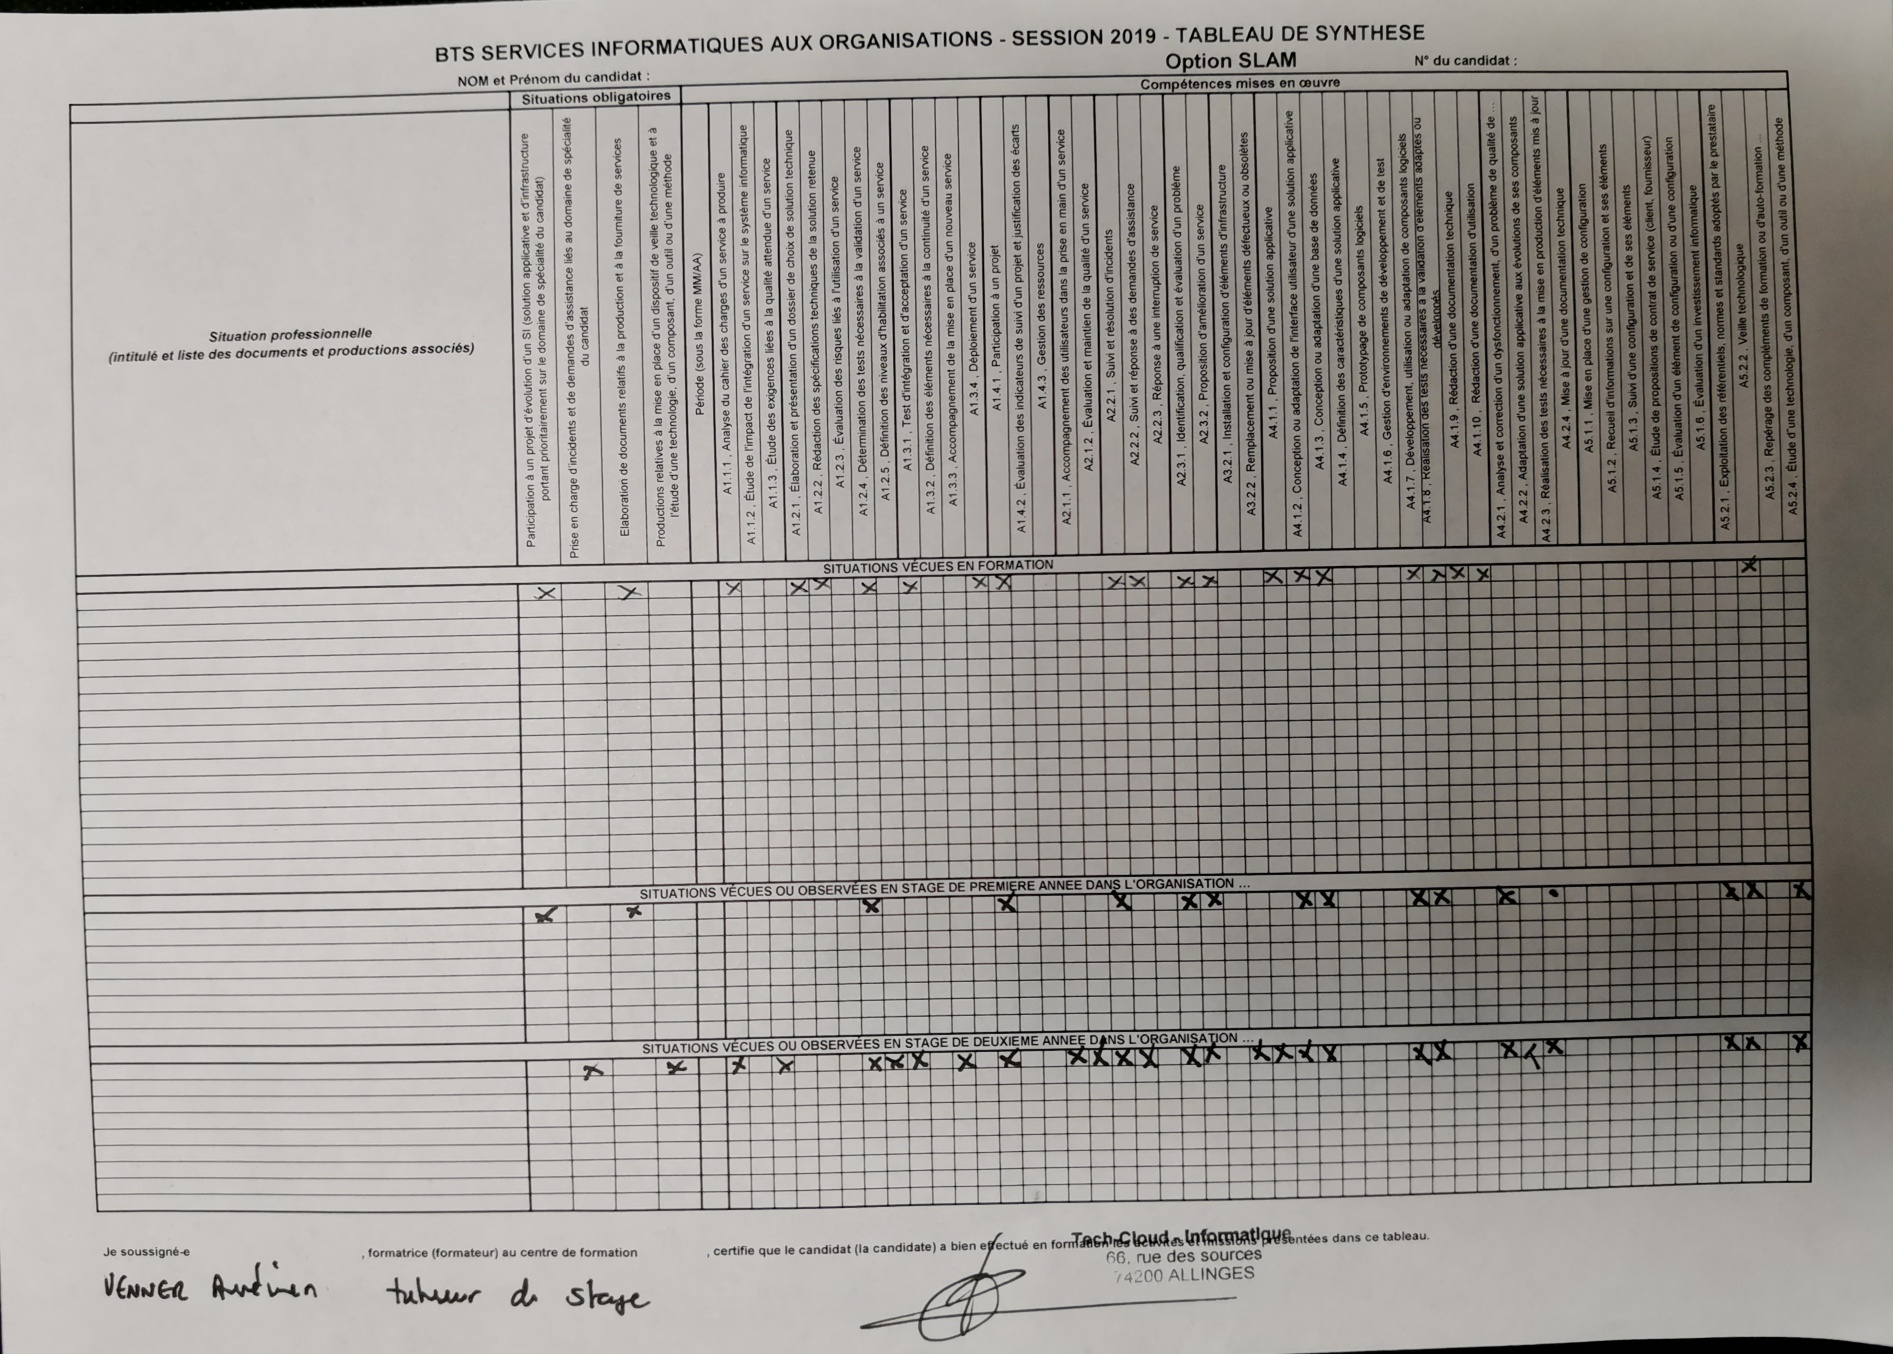 BTS SERVICES INFORMATIQUES AUX ORGANISATIONS - SESSION 2019 - TABLEAU DE SYNTHESE
Option SLAM
NOM et Prénom du candidat :
N° du candidat :
Situations obligatoires
Compétences mises en œuvre
Situation professionnelle
(intitulé et liste des documents et productions associés)
Participation à un projet d'évolution d'un SI (solution applicative et d'infrastructure
portant prioritairement sur le domaine de spécialité du candidat)
Prise en charge d'incidents et de demandes d'assistance liés au domaine de spécialité
du candidat
Elaboration de documents relatifs à la production et à la fourniture de services
Productions relatives à la mise en place d'un dispositif de veille technologique et à
l'étude d'une technologie, d'un composant, d'un outil ou d'une méthode
Période (sous la forme MM/AA)
A1.1.1 , Analyse du cahier des charges d'un service à produire
A1.1.2 , Étude de l'impact de l'intégration d'un service sur le système informatique
A1.1.3 , Étude des exigences liées à la qualité attendue d'un service
A1.2.1 , Élaboration et présentation d'un dossier de choix de solution technique
A1.2.2 , Rédaction des spécifications techniques de la solution retenue
A1.2.3 , Évaluation des risques liés à l'utilisation d'un service
A1.2.4 , Détermination des tests nécessaires à la validation d'un service
A1.2.5 , Définition des niveaux d'habilitation associés à un service
A1.3.1 , Test d'intégration et d'acceptation d'un service
A1.3.2 , Définition des éléments nécessaires à la continuité d'un service
A1.3.3 , Accompagnement de la mise en place d'un nouveau service
A1.3.4 , Déploiement d'un service
A1.4.1 , Participation à un projet
A1.4.2 , Évaluation des indicateurs de suivi d'un projet et justification des écarts
A1.4.3 , Gestion des ressources
A2.1.1 , Accompagnement des utilisateurs dans la prise en main d'un service
A2.1.2 , Évaluation et maintien de la qualité d'un service
A2.2.1 , Suivi et résolution d'incidents
A2.2.2 , Suivi et réponse à des demandes d'assistance
A2.2.3 , Réponse à une interruption de service
A2.3.1 , Identification, qualification et évaluation d'un problème
A2.3.2 , Proposition d'amélioration d'un service
A3.2.1 , Installation et configuration d'éléments d'infrastructure
A3.2.2 , Remplacement ou mise à jour d'éléments défectueux ou obsolètes
A4.1.1 , Proposition d'une solution applicative
A4.1.2 , Conception ou adaptation de l'interface utilisateur d'une solution applicative
A4.1.3 , Conception ou adaptation d'une base de données
A4.1.4 , Définition des caractéristiques d'une solution applicative
A4.1.5 , Prototypage de composants logiciels
A4.1.6 , Gestion d'environnements de développement et de test
A4.1.7 , Développement, utilisation ou adaptation de composants logiciels
A4.1.8 , Réalisation des tests nécessaires à la validation d'éléments adaptés ou
développés
A4.1.9 , Rédaction d'une documentation technique
A4.1.10 , Rédaction d'une documentation d'utilisation
A4.2.1 , Analyse et correction d'un dysfonctionnement, d'un problème de qualité de ...
A4.2.2 , Adaptation d'une solution applicative aux évolutions de ses composants
A4.2.3 , Réalisation des tests nécessaires à la mise en production d'éléments mis à jour
A4.2.4 , Mise à jour d'une documentation technique
A5.1.1 , Mise en place d'une gestion de configuration
A5.1.2 , Recueil d'informations sur une configuration et ses éléments
A5.1.3 , Suivi d'une configuration et de ses éléments
A5.1.4 , Étude de propositions de contrat de service (client, fournisseur)
A5.1.5 , Évaluation d'un élément de configuration ou d'une configuration
A5.1.6 , Évaluation d'un investissement informatique
A5.2.1 , Exploitation des référentiels, normes et standards adoptés par le prestataire
A5.2.2 , Veille technologique
A5.2.3 , Repérage des compléments de formation ou d'auto-formation ...
A5.2.4 , Étude d'une technologie, d'un composant, d'un outil ou d'une méthode
SITUATIONS VÉCUES EN FORMATION
SITUATIONS VÉCUES OU OBSERVÉES EN STAGE DE PREMIERE ANNEE DANS L'ORGANISATION ...
SITUATIONS VÉCUES OU OBSERVÉES EN STAGE DE DEUXIEME ANNEE DANS L'ORGANISATION ...
Je soussigné-e , formatrice (formateur) au centre de formation , certifie que le candidat (la candidate) a bien effectué en formation les activités et missions présentées dans ce tableau.
Tech-Cloud - Informatique
66, rue des sources
74200 ALLINGES
VENNER tuteur de stage